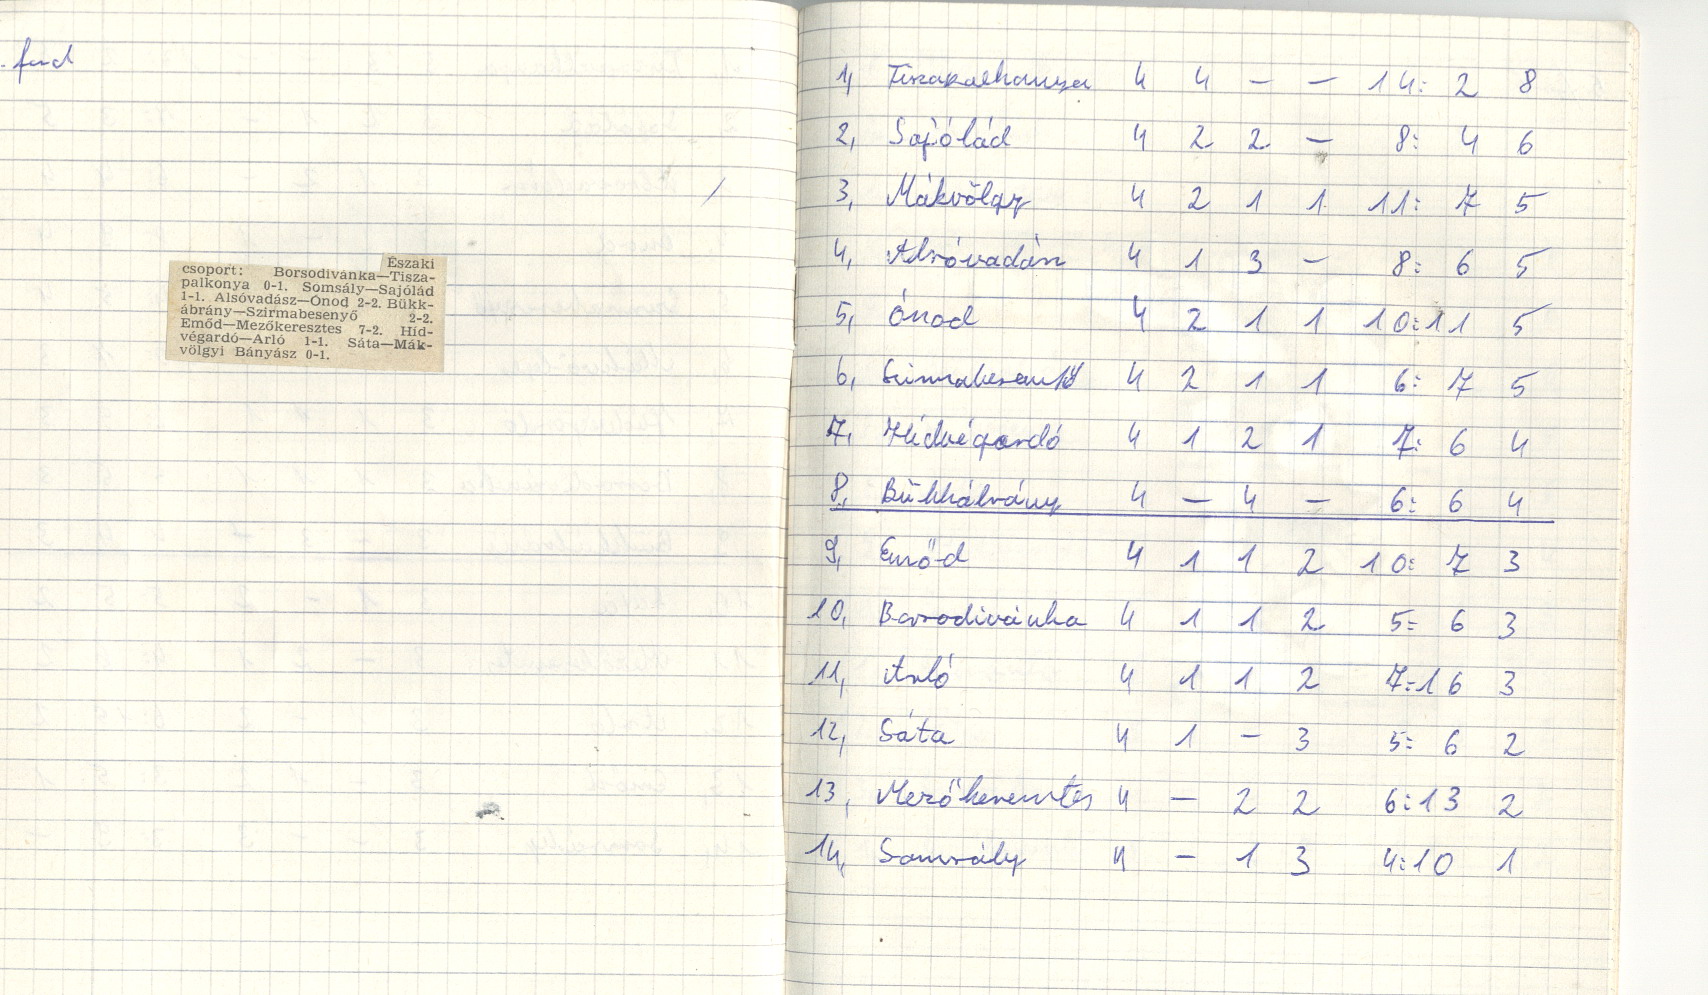 . ford
Északi
csoport: Borsodivánka—Tisza-
palkonya 0-1. Somsály—Sajólád
1-1. Alsóvadász—Ónod 2-2. Bükk-
ábrány—Szirmabesenyő 2-2.
Emőd—Mezőkeresztes 7-2. Híd-
végardó—Arló 1-1. Sáta—Mák-
völgyi Bányász 0-1.
1, Tiszapalkonya 4 4 — — 14: 2 8
2, Sajólád 4 2 2 — 8: 4 6
3, Mákvölgy 4 2 1 1 11: 7 5
4, Alsóvadász 4 1 3 — 8: 6 5
5, Ónod 4 2 1 1 10:11 5
6, Szirmabesenyő 4 2 1 1 6: 7 5
7, Hídvégardó 4 1 2 1 7: 6 4
8, Bükkábrány 4 — 4 — 6: 6 4
9, Emőd 4 1 1 2 10: 7 3
10, Borsodivánka 4 1 1 2 5: 6 3
11, Arló 4 1 1 2 7:16 3
12, Sáta 4 1 — 3 5: 6 2
13, Mezőkeresztes 4 — 2 2 6:13 2
14, Somsály 4 — 1 3 4:10 1